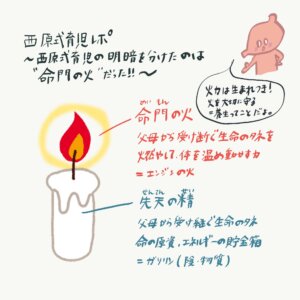 西原式育児レポ
〜西原式育児の明暗を分けたのは
“命門の火”だった!!〜
火力は生まれつき!
火を大切に守る
=養生ってことだよ。
めいもん
命門の火
父母から受け継ぐ生命のタネを
燃やして、体を温め動かす力
=エンジンの火
せんてん せい
先天の精
父母から受け継ぐ生命のタネ
命の原資、エネルギーの貯金箱
=ガソリン(陰・物質)